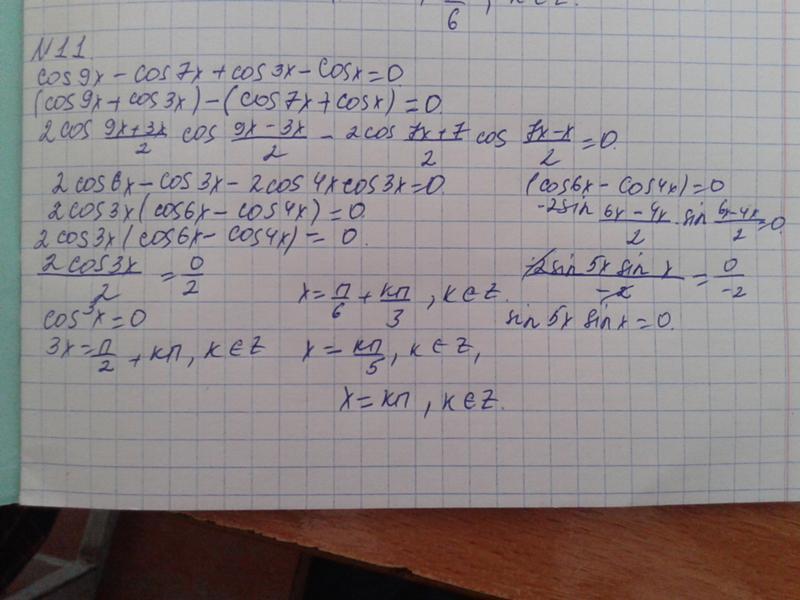 6 , к∈Z.
N11
cos9x - cos7x + cos3x - cosx = 0
(cos9x + cos3x) - (cos7x + cosx) = 0.
2cos (9x+3x)/2 cos (9x-3x)/2 - 2cos (7x+7)/2 cos (7x-x)/2 = 0.
2cos6x - cos3x - 2cos4xcos3x = 0.
2cos3x(cos6x - cos4x) = 0.
2cos3x(cos6x - cos4x) = 0.
2cos3x/2 = 0/2
cos3x = 0
3x = п/2 + кп, к∈Z
x = п/6 + кп/3, к∈Z.
x = кп/5, к∈Z,
x = кп, к∈Z.
(cos6x - cos4x) = 0
-2sin (6x-4x)/2 · sin (6x-4x)/2 = 0
-2sin5x sin x/-2 = 0/-2
sin5x sinx = 0.